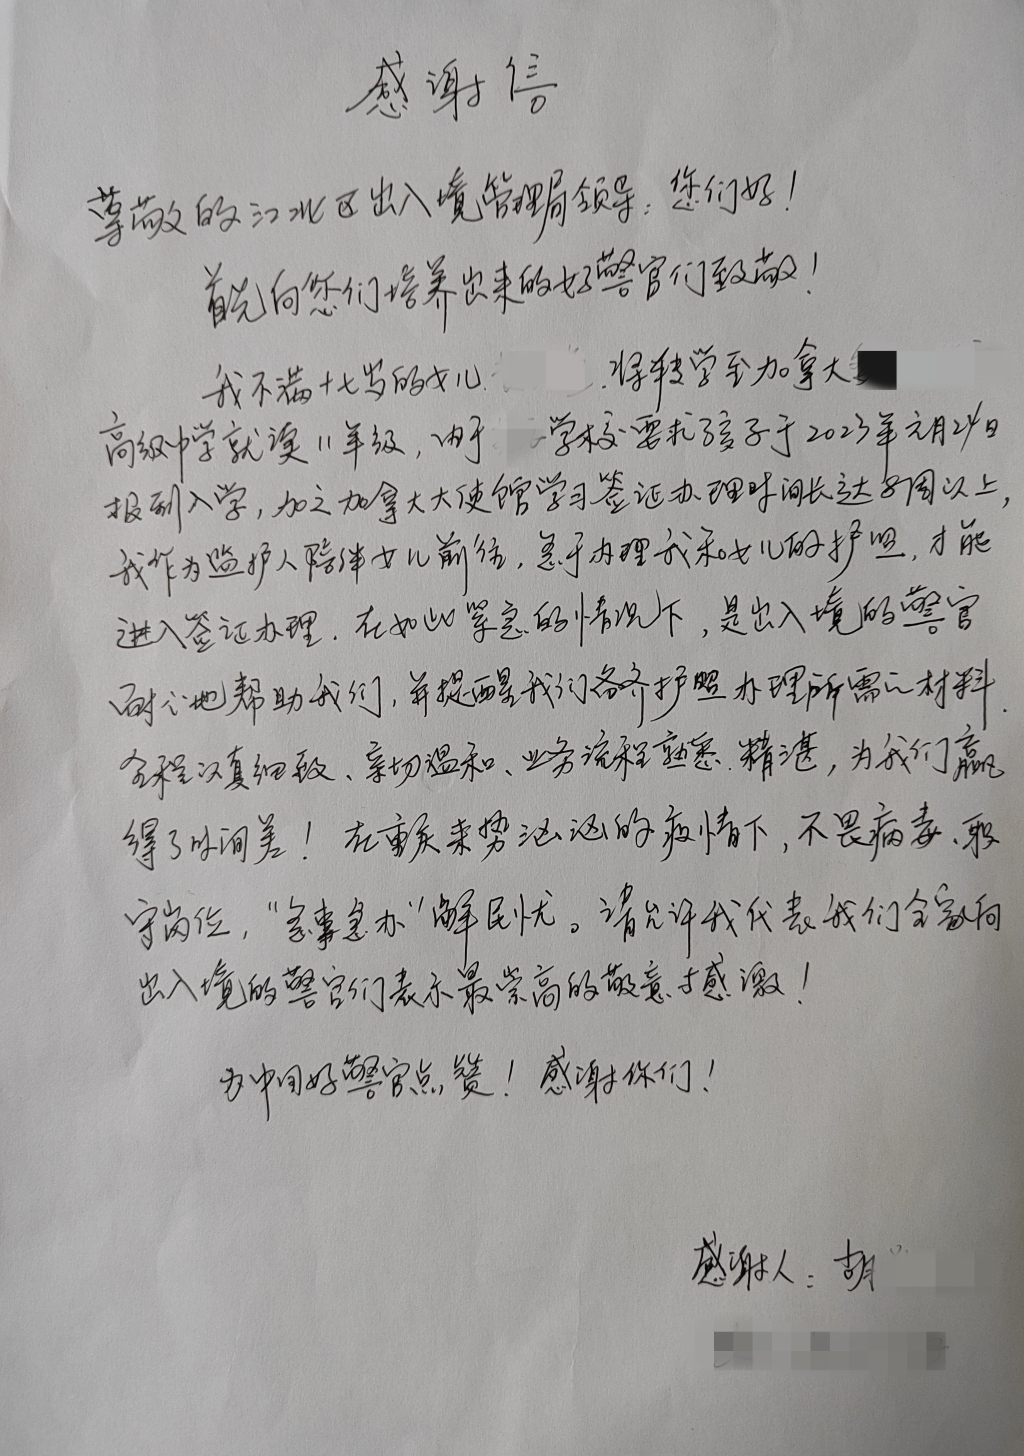 感谢信
尊敬的江北区出入境管理局领导：您们好！
首先向您们培养出来的好警官们致敬！
我不满十七岁的女儿 将转学至加拿大
高级中学就读11年级，由于 学校要求孩子于2023年元月24日
报到入学，加之加拿大大使馆学习签证办理时间长达8周以上，
我作为监护人陪伴女儿前往，急于办理我和女儿的护照，才能
进入签证办理．在如此紧急的情况下，是出入境的警官
耐心地帮助我们，并提醒我们备齐护照办理所需之材料．
全程认真细致、亲切温和、业务流程熟悉．精湛，为我们赢
得了时间差！在重庆来势汹汹的疫情下，不畏病毒、坚
守岗位，“急事急办”解民忧。请允许我代表我们全家向
出入境的警官们表示最崇高的敬意与感激！
为中国好警官点赞！感谢你们！
感谢人：胡